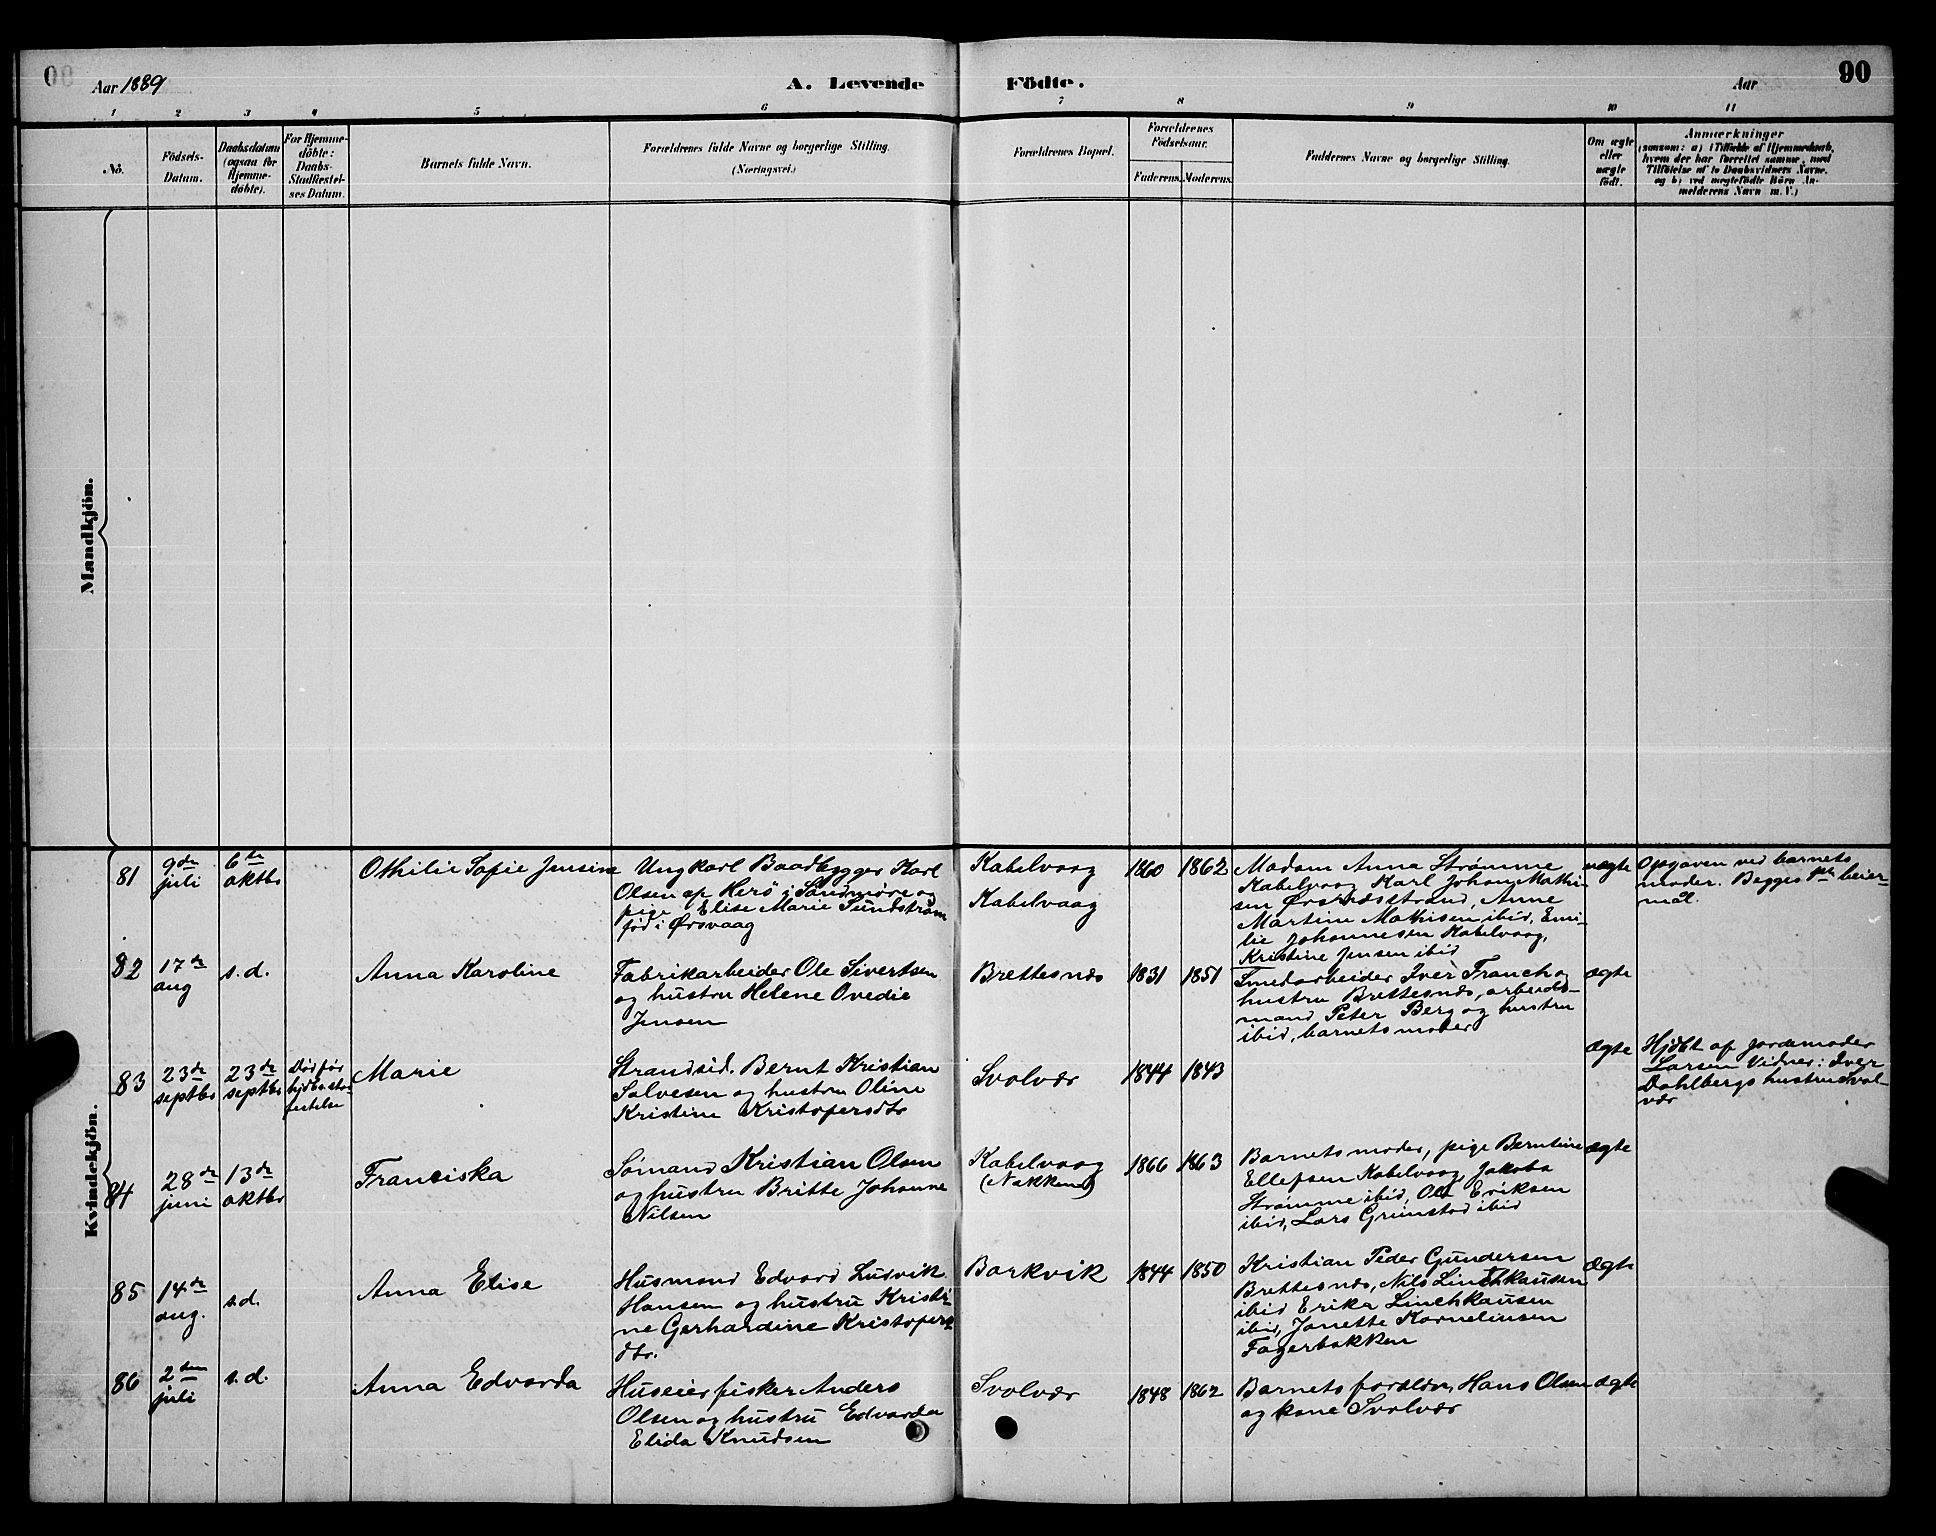 Aar 1889
A. Levende
Födte.
Aar
90
1 2 3 4 5 6 7 8 9 10 11
No.
Födsels-
Datum.
Daabsdatum
(ogsaa for
Hjemme-
döbte).
For Hjemme-
döbte:
Daabs-
Stadfæstel-
ses Datum.
Barnets fulde Navn.
Forældrenes fulde Navne og borgerlige Stilling.
(Næringsvei.)
Forældrenes Bopæl.
Forældrenes
Födselsaar.
Faderens. Moderens.
Faddernes Navne og borgerlige Stilling.
Om ægte
eller
uægte
født.
Anmærkninger
(saasom: a) i Tilfælde af Hjemmedaab,
hvem der har forrettet samme, med
Tilföielse af to Daabsvidners Navne,
og b) ved uægtefödte Börn An-
melderens Navn m. V.)
Mandkjön.
Kvindekjön.
81
9de
juli
6te
oktbr
Othilie Sofie Jensine
Ungkarl Baadbygger Karl
Olsen af Herö i Söndmöre og
pige Elise Marie Sundström
född i Ørsvaag
Kabelvaag
Kabelvaag
1860 1862
Madam Anna Strømme
Kabelvaag Karl Johan Mathi-
sen Ørsnæsstrand, Anne
Martine Mathisen ibid, Emi-
lie Johannesen Kabelvaag,
Kristine Jensen ibid
uægte
Opgaven ved barnets
moder. Begges 1ste leier-
mål.
82
17de
aug
s.d.
Anna Karoline
Fabrikarbeider Ole Sivertsen
og hustru Helene Ovedie
Jensen
Brettesnæs
1831 1851
Smedarbeider Iver Franch og
hustru Brettesnæs, arbeids-
mand Peter Berg og hustru
ibid, barnets moder
ægte
83
23de
septbr
23de
septbr
Död för
Marie
Strandsid. Bernt Kristian
Salvesen og hustru Oline
Kristine Kristofersdtr
Svolvær
1844 1843
ægte
Hjdbt af jordemoder
Larsen Vidner: Iver
Dahlbergs hustru Svol
vær
84
28de
juni
13de
oktbr
Franciska
Sømand Kristian Olsen
og hustru Britte Johanne
Nilsen
Kabelvaag
(Nakken)
1866 1863
Barnets moder, pige Berntine
Ellefsen Kabelvaag, Jakoba
Strømme ibid, Ole Eriksen
ibid, Lars Grimstad ibid
ægte
85
14de
aug.
s.d.
Anna Elise
Husmand Edvard Ludvik
Hansen og hustru Kristi-
ne Gerhardine Kristofers-
dtr.
Barkvik
1844 1850
Kristian Peder Gundersen
Brettesnæs, Nils Linchhausen
ibid Erika Linchkausen
ibid, Janette Kornelinsen
Fagerbakken
ægte
86
2den
juli
s.d.
Anna Edvarda
Huseier fisker Anders
Olsen og hustru Edvarda
Elida Knudsen
Svolvær
1848 1862
Barnets forældre, Hans Olsen
og kone Svolvær
ægte